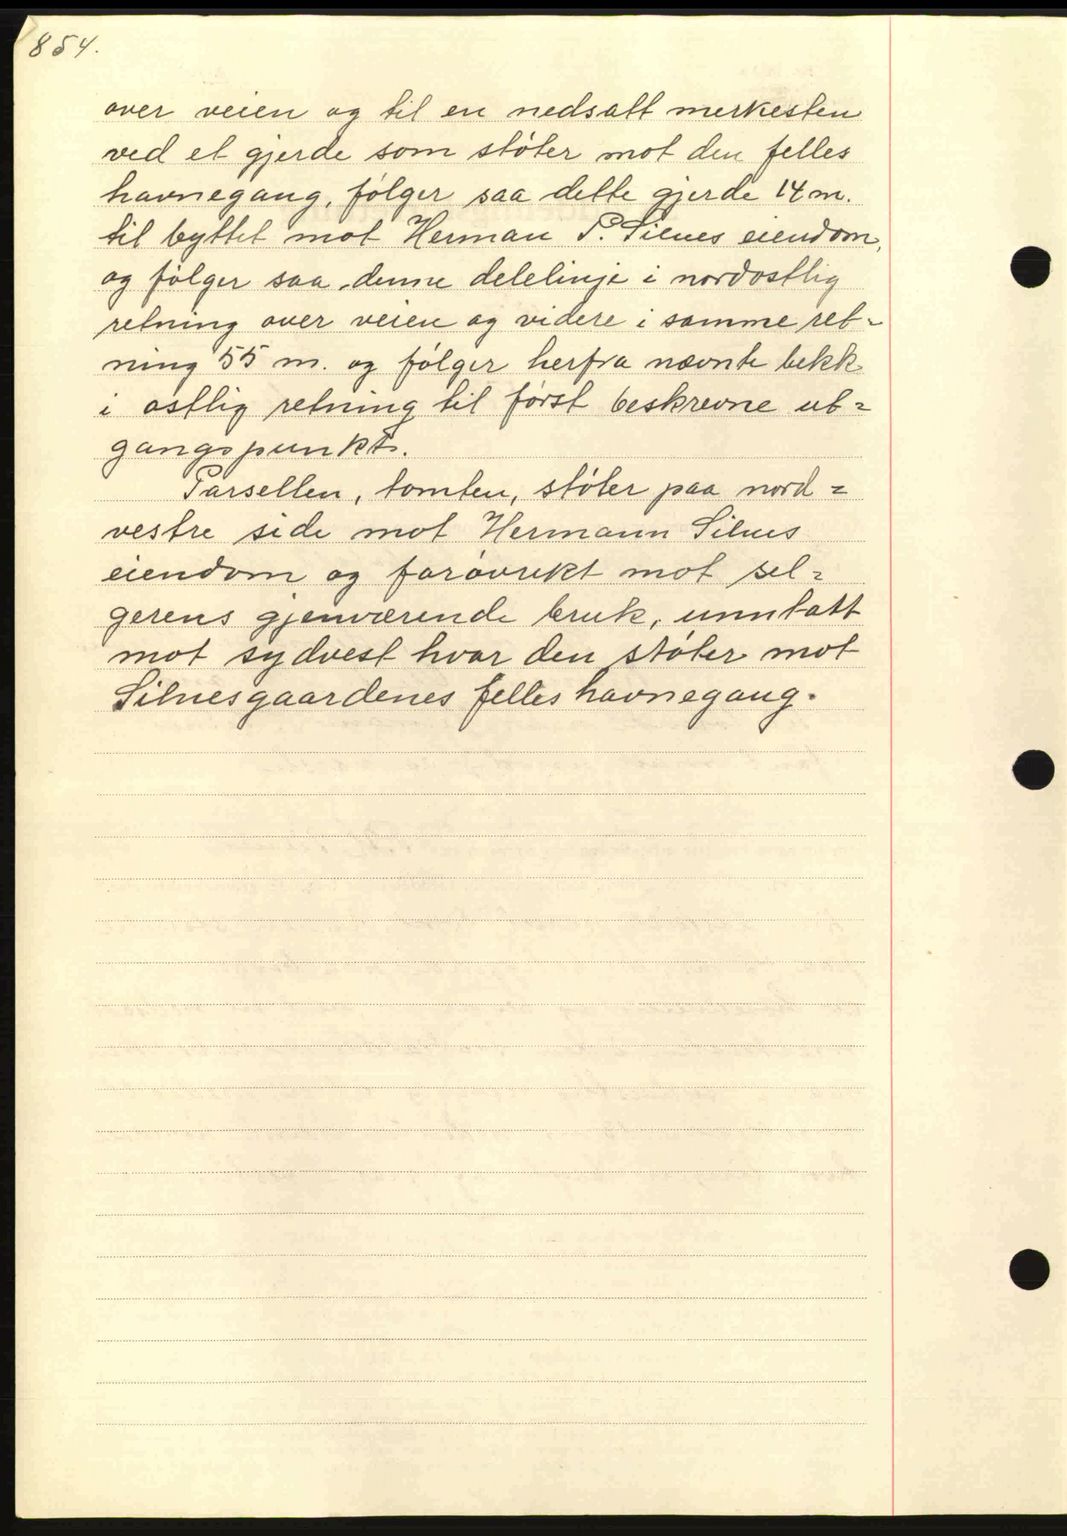 854.
over veien og til en nedsatt merkesten
ved et gjerde som støter mot den felles
havnegang, følger saa dette gjerde 14 m.
til byttet mot Herman P. Silnes eiendom,
og følger saa denne delelinje i nordostlig
retning over veien og videre i samme ret=
ning 55 m. og følger herfra nævnte bekk
i østlig retning til først beskrevne ut=
gangspunkt.
Parsellen, tomten, støter paa nord=
vestre side mot Hermann Silnes
eiendom og forøvrikt mot sel=
gerens gjenværende bruk, unntatt
mot sydvest hvor den støter mot
Silnesgaardenes felles havnegang.